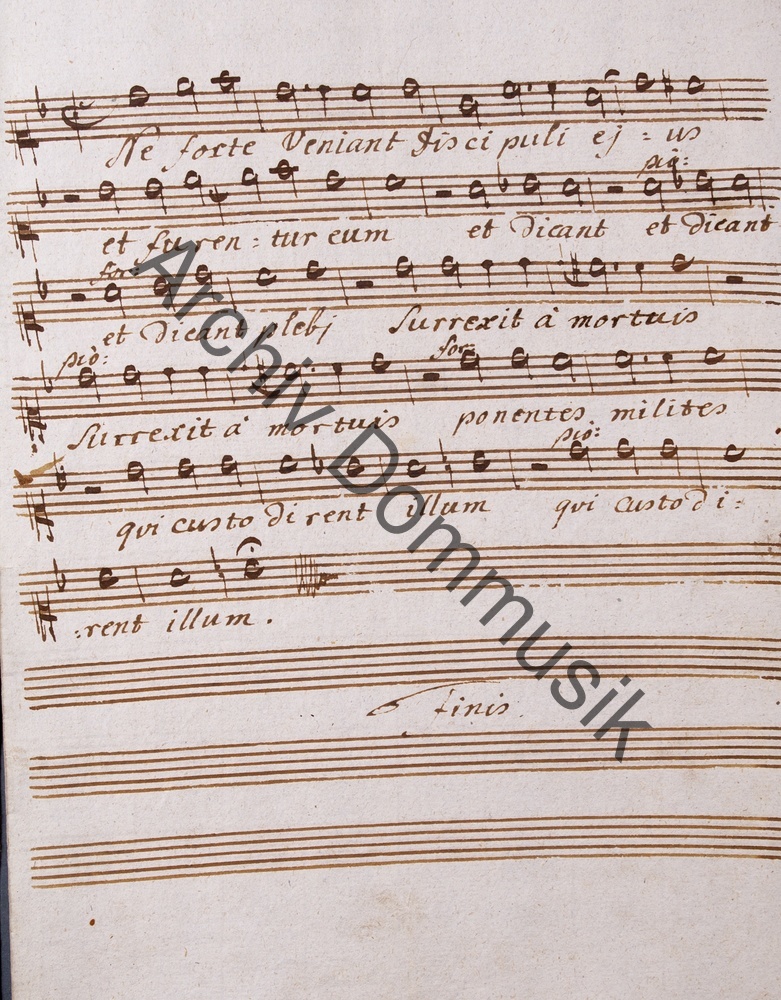 Ne forte Veniant Disci puli ej = us
pio:
et fu ren = tur eum et Dicant et dicant
for:
et Dicant plebj Surrexit à mortuis
pio: for:
Surrexit à mortuis ponentes milites
pio:
qvi custo di rent illum qvi custo d i =
=rent illum.
finis.
Archiv Dommusik